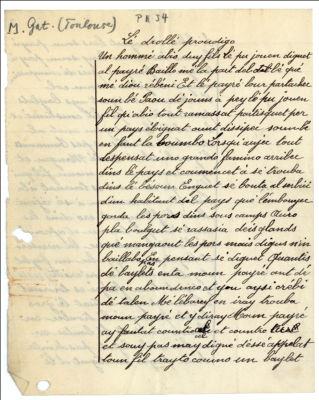 M. Gat. (Toulouse) PR 34
Lé drollé proudigo
Un hommé abio dus fils lé pu jouen diguet
al payré Baillo me la part del bé qué
me diou rébéni Et le payré lour partachec
soun bé Paou dé jouns à prep lé pu jouen
fil qu'abio tout ramassat partisquet per
un pays élouignat ount dissipec soun bé
en fant la boumbo Lorsqu'augec tout
despensat uno grando famino arribec
dins le pays et coumencet à sé trouba
dins le besoun Enquet se bouta al serbici
d'un habitant dal pays que l'embouyec
garda les porcs dins sous camps Auro
pla boulgut sé rassasia des glands
que manjaout les pors mais digus n'in
baillabo En pensant se diguet Quantis
dé baylets en ta moun payré ant de
pa en abondence et you aysi crébi
dé talen Mé lebarey en iray trouba
moun payré et y diray Moun payre
ay fautat countro et countro
et souy pas may digné d'essé appelat
toun fil trayto coumo un baylet